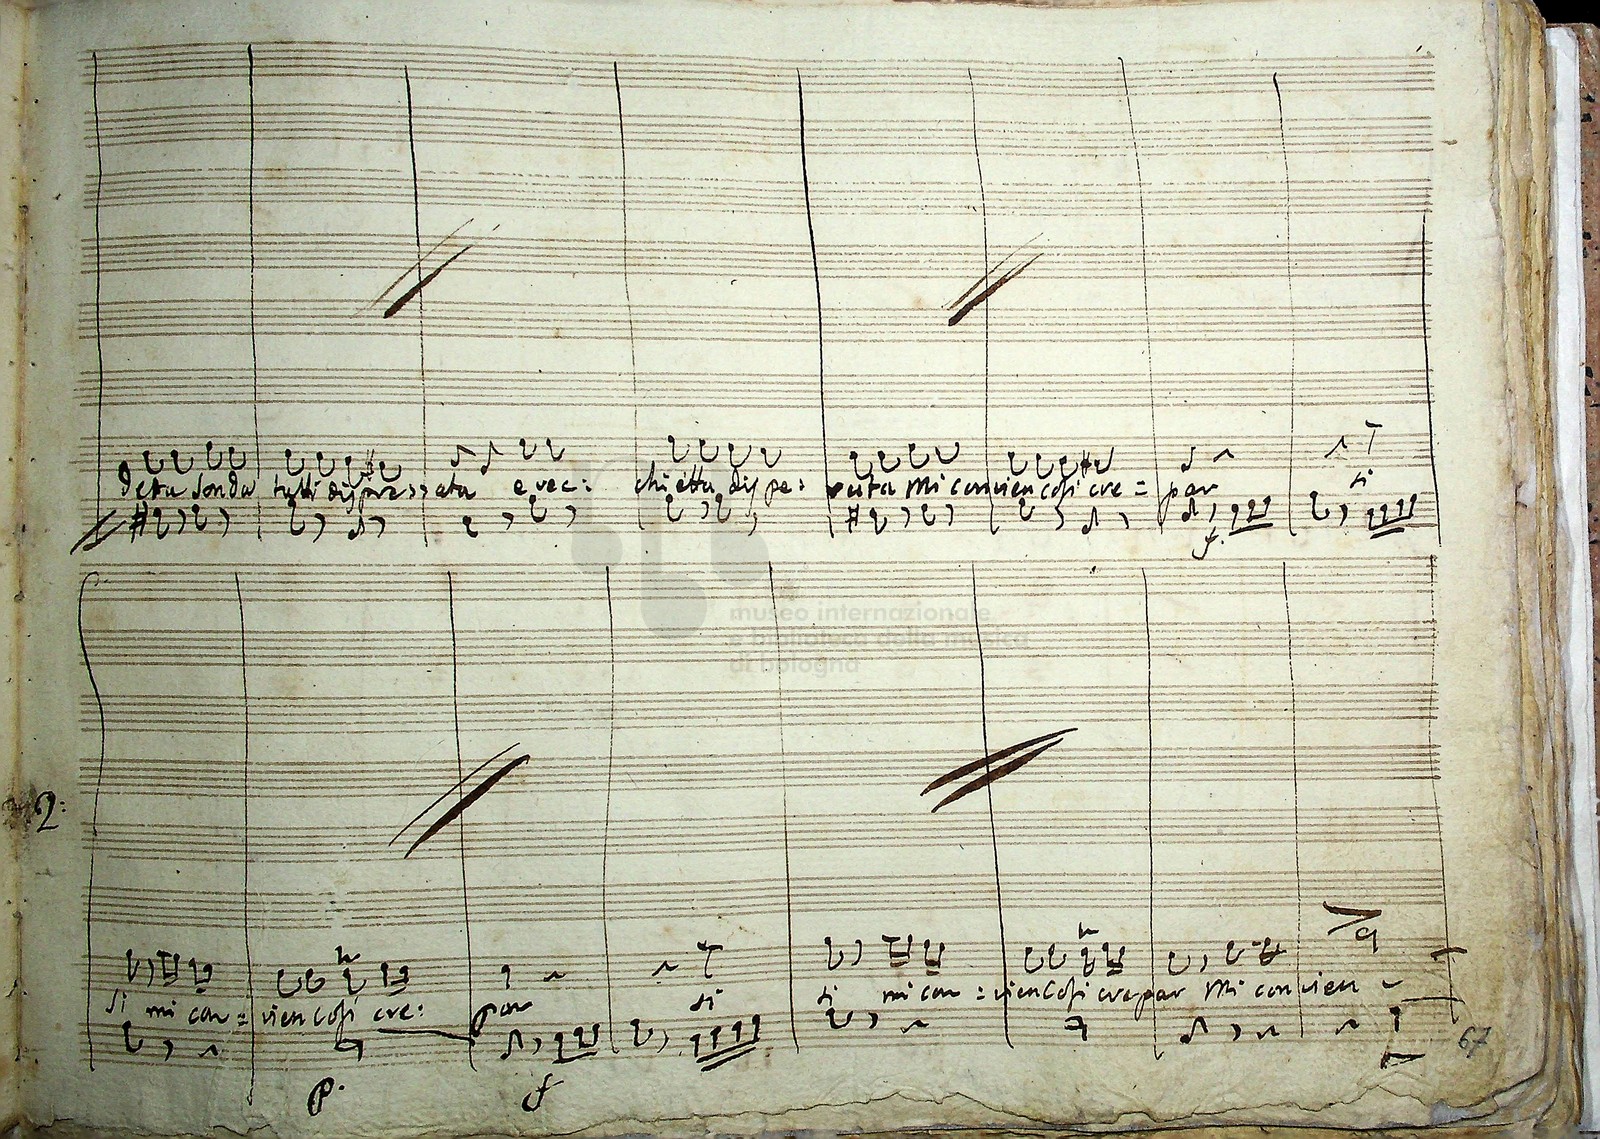 da tutti disprezzata e vec: chietta dispe: rata mi convien così cre= par si
f.
museo internazionale
e biblioteca della musica
di bologna
2:
si mi con= vien così cre: par si si mi con= vien così crepar mi con vien
67
p. f